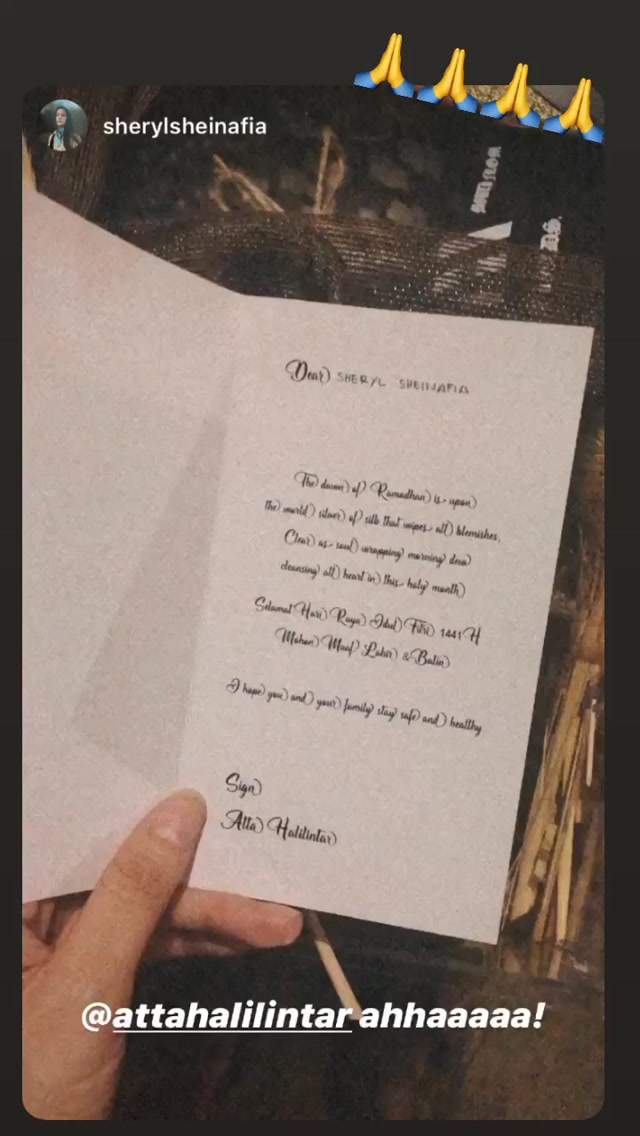 sherylsheinafia
Dear SHERYL SHEINAFIA
The dawn of Ramadhan is upon
the world silver of silk that wipes all blemishes,
Clear as soul wrapping morning dew
cleansing all heart in this holy month
Selamat Hari Raya Idul Fitri 1441 H
Mohon Maaf Lahir & Batin
I hope you and your family stay safe and healthy
Sign
Atta Halilintar
@attahalilintar ahhaaaaa!